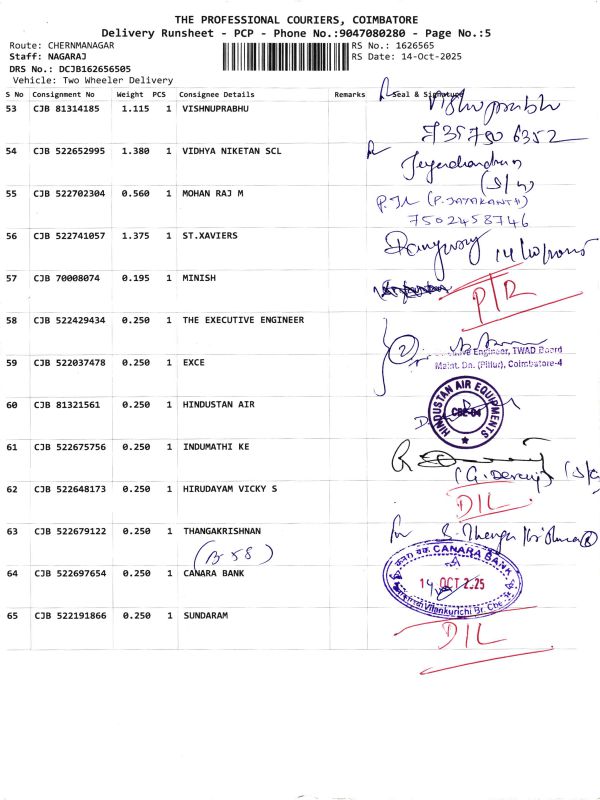 THE PROFESSIONAL COURIERS, COIMBATORE
Delivery Runsheet - PCP - Phone No.:9047080280 - Page No.:5
Route: CHERNMANAGAR RS No.: 1626565
Staff: NAGARAJ RS Date: 14-Oct-2025
DRS No.: DCJB162656505
Vehicle: Two Wheeler Delivery
S No Consignment No Weight PCS Consignee Details Remarks Seal & Signature
53 CJB 81314185 1.115 1 VISHNUPRABHU Vishnuprabhu
735790 6352
54 CJB 522652995 1.380 1 VIDHYA NIKETAN SCL
55 CJB 522702304 0.560 1 MOHAN RAJ M
(P. JAYAKANTH)
7502458746
56 CJB 522741057 1.375 1 ST.XAVIERS
57 CJB 70008074 0.195 1 MINISH
58 CJB 522429434 0.250 1 THE EXECUTIVE ENGINEER
2
Engineer, TWAD Board
59 CJB 522037478 0.250 1 EXCE Maint. Dn. (Pillur), Coimbatore-4
60 CJB 81321561 0.250 1 HINDUSTAN AIR HINDUSTAN AIR EQUIPMENTS CBE-04
61 CJB 522675756 0.250 1 INDUMATHI KE
62 CJB 522648173 0.250 1 HIRUDAYAM VICKY S D/L
63 CJB 522679122 0.250 1 THANGAKRISHNAN
(B 58)
64 CJB 522697654 0.250 1 CANARA BANK CANARA BANK
14 OCT 2025
65 CJB 522191866 0.250 1 SUNDARAM D/L